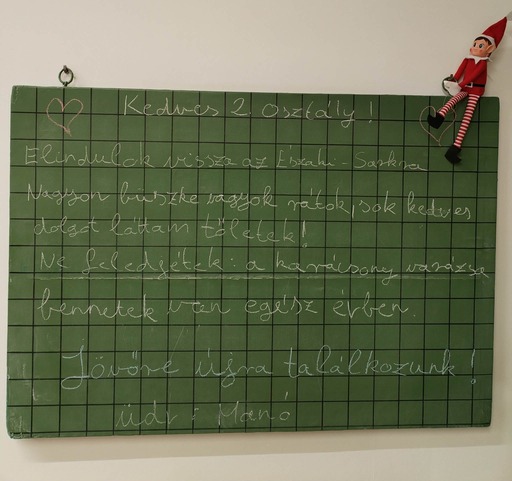 Kedves 2. osztály!
Elindulok vissza az Északi-Sarkra
Nagyon büszke vagyok rátok, sok kedves
dolgot láttam tőletek!
Ne feledjétek: a karácsony varázsa
bennetek van egész évben.
Jövőre újra találkozunk!
üdv: Manó